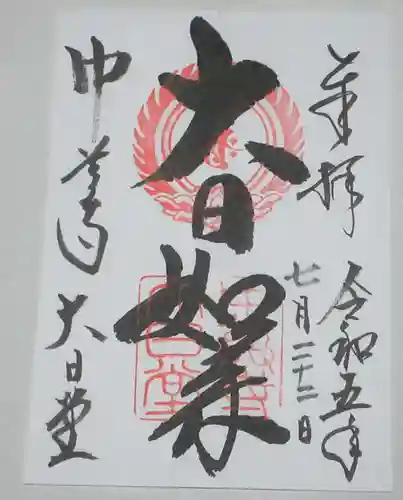 奉拝
令和五年
七月二十二日
大日如来
中善寺 大日堂